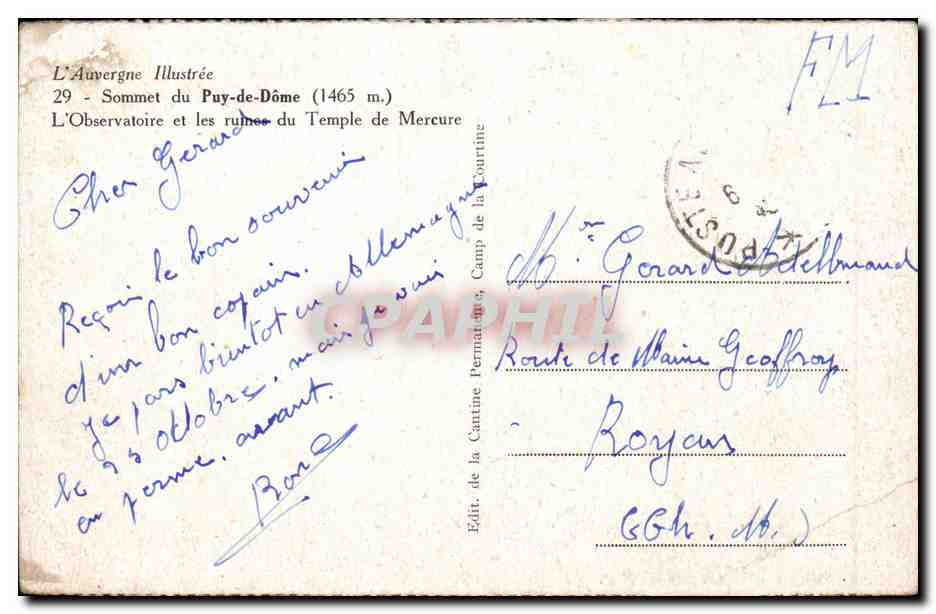 L'Auvergne Illustrée
29 - Sommet du Puy-de-Dôme (1465 m.)
L'Observatoire et les ruines du Temple de Mercure
Cher Gerard
Reçois le bon souvenir
d'un bon copain.
Je pars bientot en Allemagne
le 23 Octobre, mais je vais
en perme. avant.
Edit. de la Cantine Permanente, Camp de la Courtine
FM
POSTE
Mr. Gerard
Route de Maine Geoffroy
Royan
(Ch. M.)
CPAPHIL